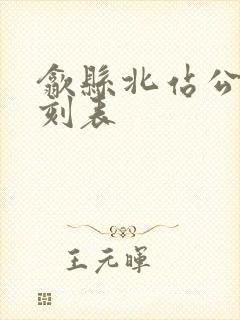 歙縣北佔公
刻表
王元暉